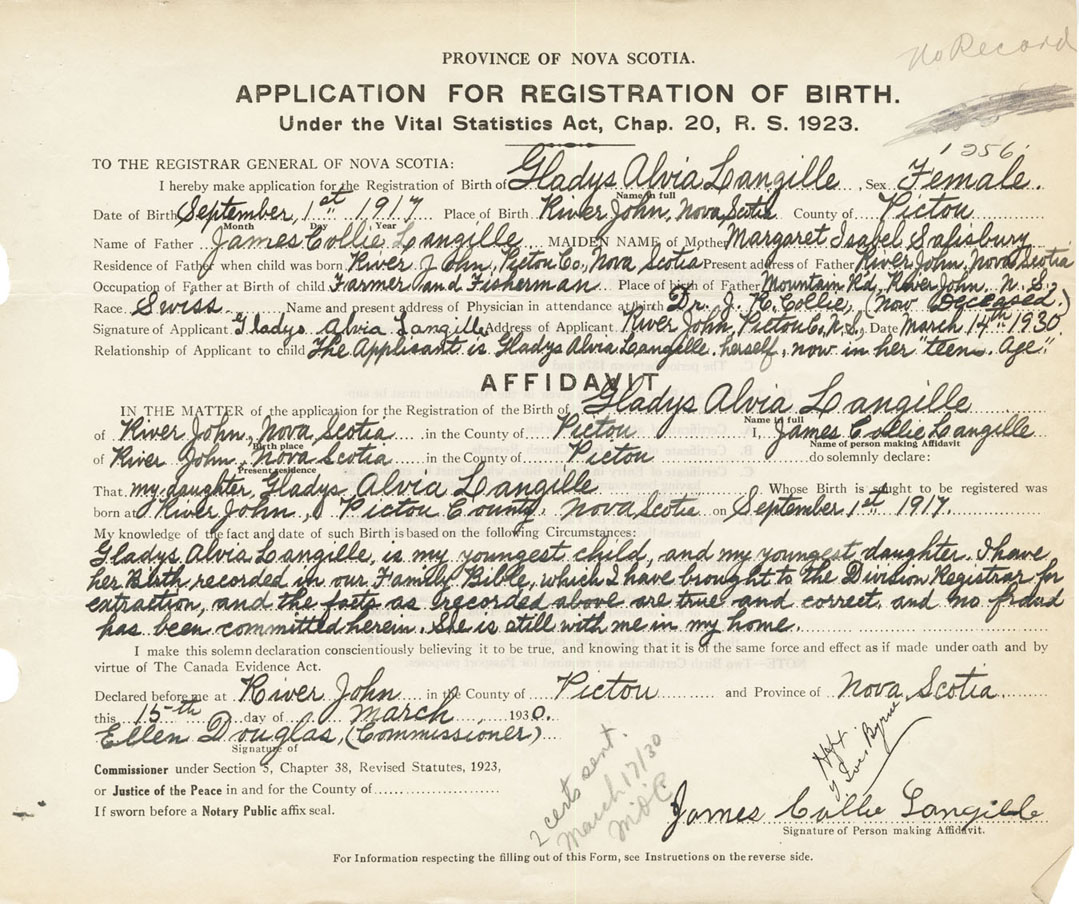 No Record
PROVINCE OF NOVA SCOTIA.
APPLICATION FOR REGISTRATION OF BIRTH.
Under the Vital Statistics Act, Chap. 20, R. S. 1923.
1256
TO THE REGISTRAR GENERAL OF NOVA SCOTIA:
I hereby make application for the Registration of Birth of Gladys Alvia Langille, Sex Female.
Name in full
Date of Birth September, 1st 1917 Place of Birth River John, Nova Scotia County of Pictou
Month Day Year
Name of Father James Collie Langille MAIDEN NAME of Mother Margaret Isabel Salisbury
Residence of Father when child was born River John, Pictou Co., Nova Scotia Present address of Father River John, Nova Scotia
Occupation of Father at Birth of child Farmer and Fisherman Place of birth of Father Mountain Rd, River John, N. S.
Race Swiss Name and present address of Physician in attendance at birth Dr. J. K. Collie, (now Deceased.)
Signature of Applicant Gladys Alvia Langille Address of Applicant River John, Pictou C. N.S., Date March 14th 1930
Relationship of Applicant to child The Applicant is Gladys Alvia Langille herself, now in her "teens Age".
AFFIDAVIT
IN THE MATTER of the application for the Registration of the Birth of Gladys Alvia Langille
Name in full
of River John, Nova Scotia in the County of Pictou I, James Collie Langille
Birth place Name of person making Affidavit
of River John, Nova Scotia in the County of Pictou do solemnly declare:
Present residence
That my daughter, Gladys Alvia Langille Whose Birth is sought to be registered was
born at River John, Pictou County, Nova Scotia on September 1st 1917.
My knowledge of the fact and date of such Birth is based on the following Circumstances:
Gladys Alvia Langille, is my youngest child, and my youngest daughter. I have
her Birth recorded in our Family Bible, which I have brought to the Division Registrar for
extraction, and the facts as recorded above are true and correct, and no fraud
has been committed herein. She is still with me in my home.
I make this solemn declaration conscientiously believing it to be true, and knowing that it is of the same force and effect as if made under oath and by
virtue of The Canada Evidence Act.
Declared before me at River John in the County of Pictou and Province of Nova Scotia
this 15th day of March, 1930.
Ellen Douglas, (Commissioner)
Signature of
Commissioner under Section 5, Chapter 38, Revised Statutes, 1923,
or Justice of the Peace in and for the County of
If sworn before a Notary Public affix seal.
2 certs sent.
March 17/30
James Collie Langille
Signature of Person making Affidavit.
For Information respecting the filling out of this Form, see Instructions on the reverse side.